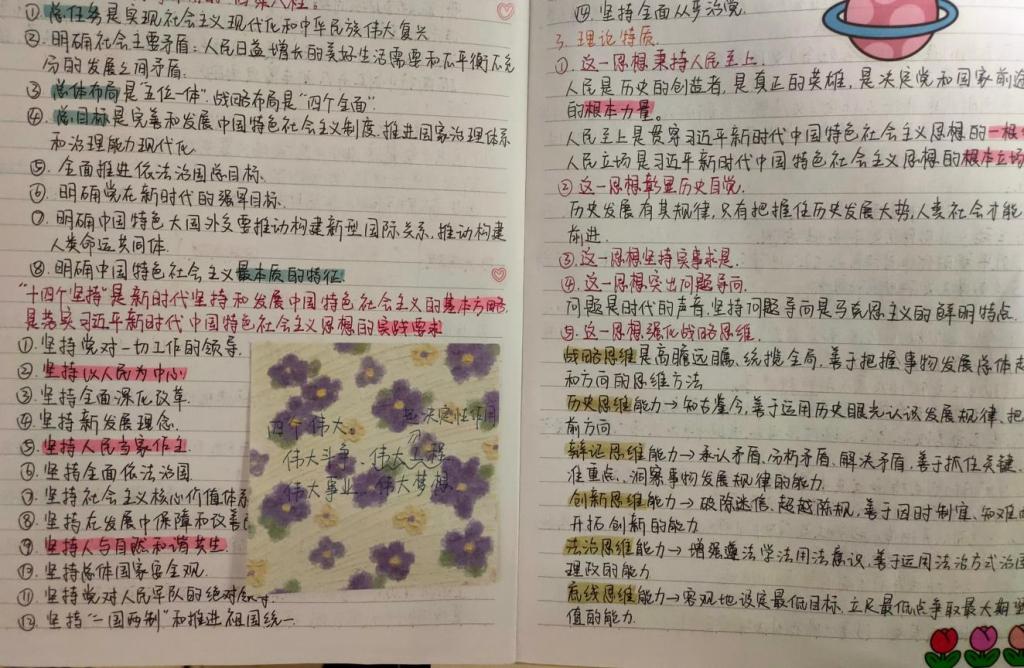 ①总任务是实现社会主义现代化和中华民族伟大复兴
②.明确社会主要矛盾:人民日益增长的美好生活需要和不平衡不充
分的发展之间矛盾.
③总体布局是"五位一体".战略布局是"四个全面".
④.总目标是完善和发展中国特色社会主义制度.推进国家治理体系
和治理能力现代化
⑤.全面推进依法治国总目标.
⑥.明确党在新时代的强军目标.
⑦.明确中国特色大国外交要推动构建新型国际关系,推动构建
人类命运共同体.
⑧.明确中国特色社会主义最本质的特征.
"十四个坚持"是新时代坚持和发展中国特色社会主义的基本方略
是落实习近平新时代中国特色社会主义思想的实践要求
①.坚持党对一切工作的领导.
②.坚持以人民为中心
③.坚持全面深化改革.
④.坚持新发展理念.
⑤.坚持人民当家作主
⑥.坚持全面依法治国.
⑦.坚持社会主义核心价值体系
⑧.坚持在发展中保障和改善
⑨.坚持人与自然和谐共生.
⑩.坚持总体国家安全观.
⑪.坚持党对人民军队的绝对
⑫.坚持"一国两制"和推进祖国统一
四个伟大。
起决定性作用
伟大斗争、伟大工程
伟大事业、伟大梦想
坚持全面从严治党.
3.理论特质.
①.这一思想秉持人民至上.
人民是历史的创造者,是真正的英雄,是决定党和国家前途
的根本力量。
人民至上是贯穿习近平新时代中国特色社会主义思想的一根
人民立场是习近平新时代中国特色社会主义思想的根本立场
②这一思想彰显历史自觉.
历史发展有其规律,只有把握住历史发展大势,人类社会才能
前进.
③.这一思想坚持实事求是.
④.这一思想突出问题导向.
问题是时代的声音.坚持问题导向是马克思主义的鲜明特点
⑤.这一思想强化战略思维.
战略思维是高瞻远瞩、统揽全局,善于把握事物发展总体
和方向的思维方法
历史思维能力→知古鉴今,善于运用历史眼光认识发展规律、把
前方向.
辩证思维能力→承认矛盾、分析矛盾、解决矛盾,善于抓住关键、
准重点、洞察事物发展规律的能力
创新思维能力→破除迷信,超越陈规,善于因时制宜、知难
开拓创新的能力
法治思维能力→增强尊法学法用法意识,善于运用法治方式治国
理政的能力
底线思维能力→客观地设定最低目标,立足最低点争取最大期
值的能力.